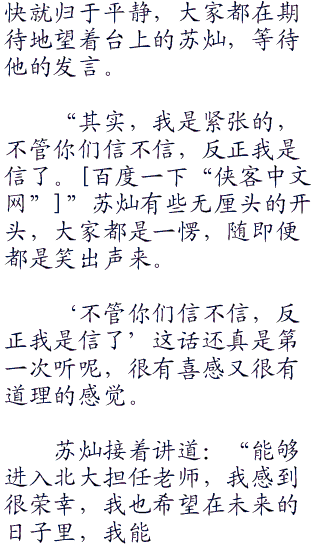 快就归于平静，大家都在期
待地望着台上的苏灿，等待
他的发言。
“其实，我是紧张的，
不管你们信不信，反正我是
信了。[百度一下“侠客中文
网”]”苏灿有些无厘头的开
头，大家都是一愣，随即便
都是笑出声来。
‘不管你们信不信，反
正我是信了’这话还真是第
一次听呢，很有喜感又很有
道理的感觉。
苏灿接着讲道：“能够
进入北大担任老师，我感到
很荣幸，我也希望在未来的
日子里，我能